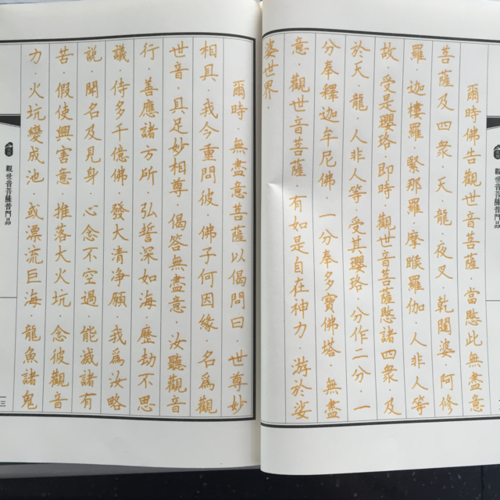 爾時佛告觀世音菩薩·當愍此無盡意
菩薩及四眾天·龍·夜叉·乾闥婆·阿修
羅·迦樓羅·緊那羅·摩睺羅伽·人非人等
故·受是瓔珞·即時·觀世音菩薩愍諸四眾·及
於天·龍·人非人等·受其瓔珞·分作二分·一
分奉釋迦牟尼佛·一分奉多寶佛塔·無盡
意·觀世音菩薩·有如是自在神力·游於娑
婆世界·
爾時·無盡意菩薩以偈問曰·世尊妙
相具·我今重問彼·佛子何因緣·名爲觀
世音·具足妙相尊·偈答無盡意·汝聽觀音
行·善應諸方所·弘誓深如海·歷劫不思
議·侍多千億佛·發大清淨願·我爲汝略
說·聞名及見身·心念不空過·能滅諸有
苦·假使興害意·推落大火坑·念彼觀音
力·火坑變成池·或漂流巨海·龍魚諸鬼
觀世音菩薩普門品
三